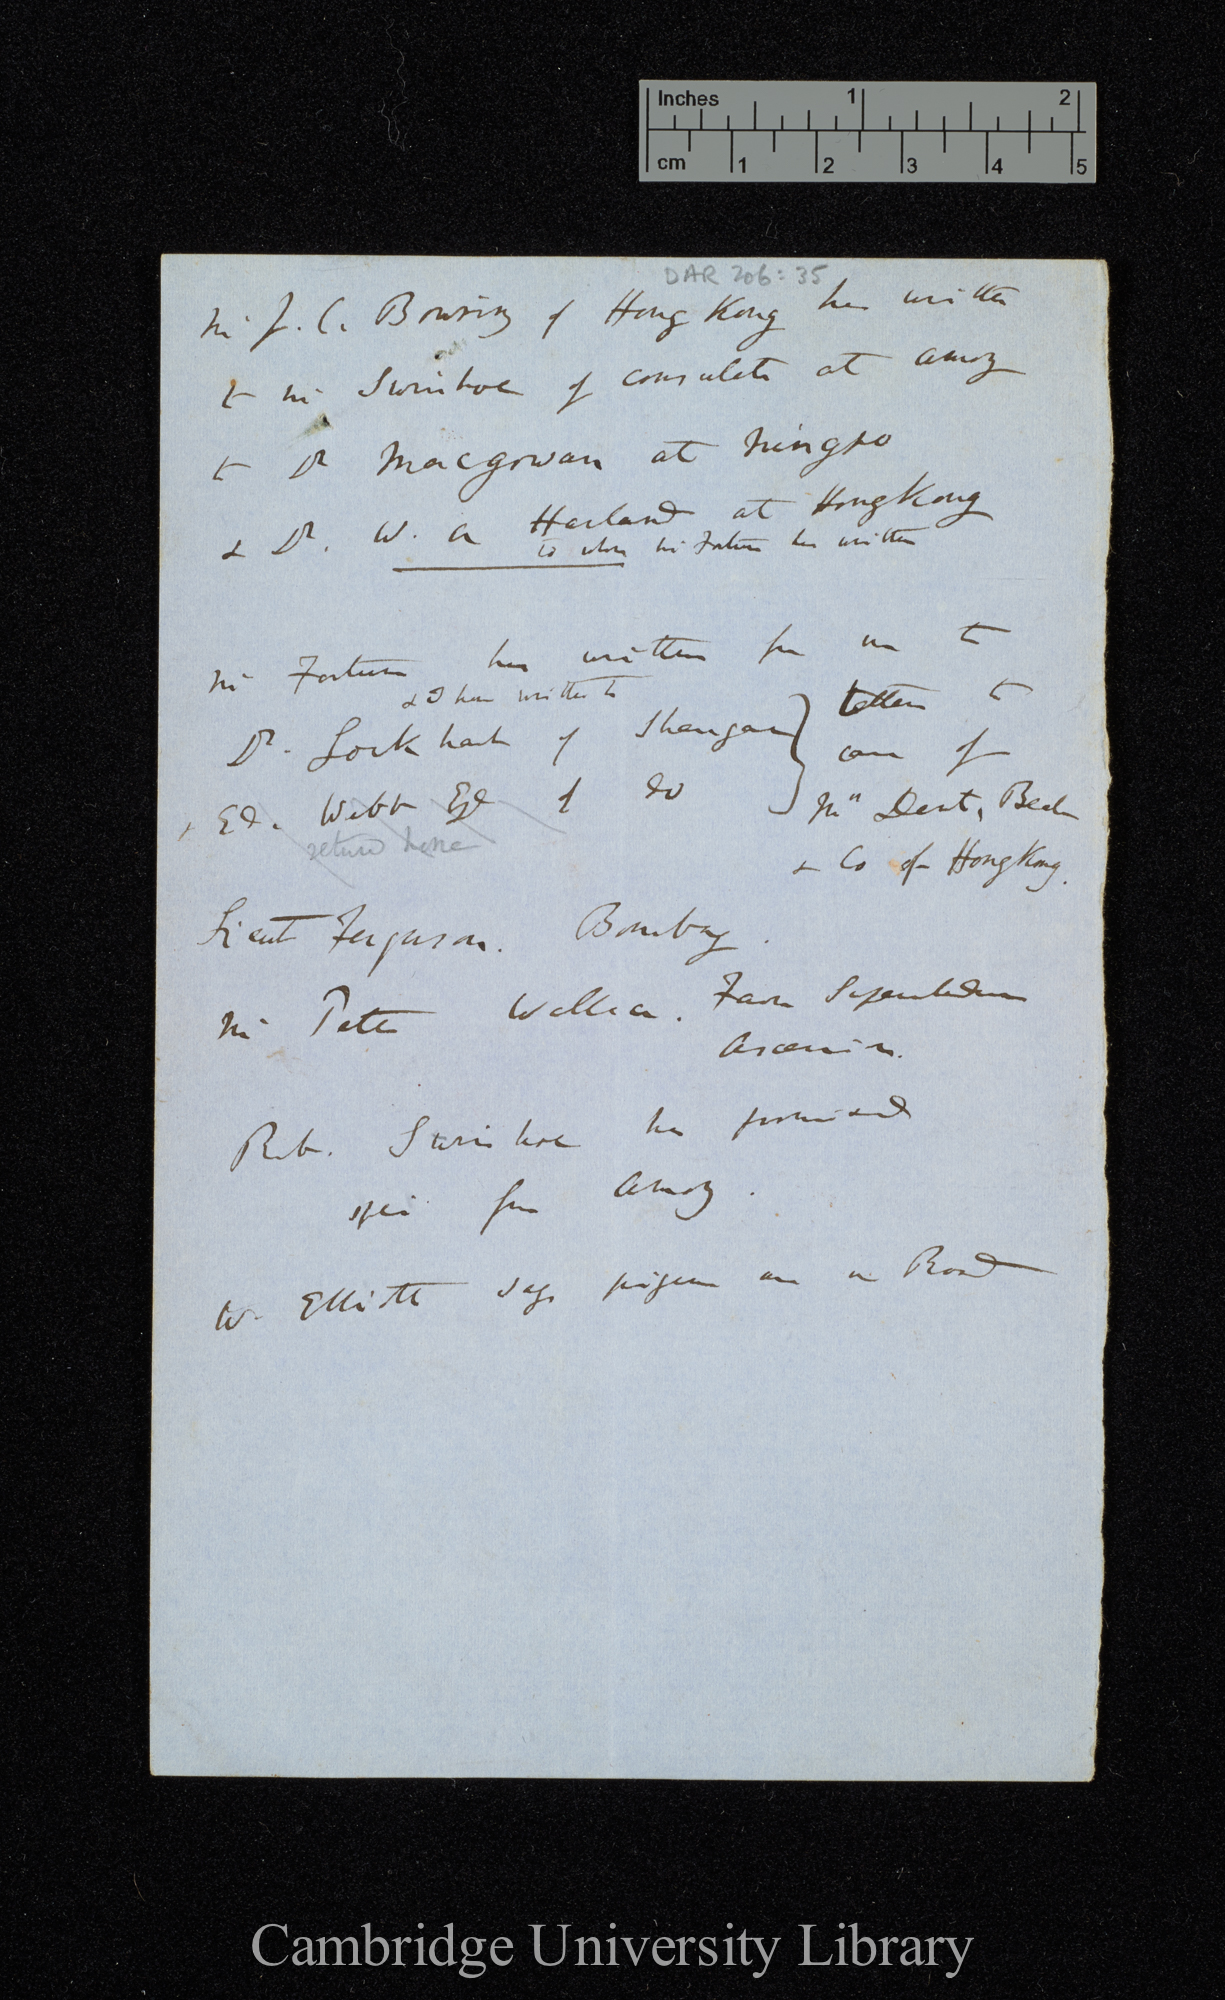 Inches 1 2
cm 1 2 3 4 5
DAR 206:35
Mr J. C. Bowring of Hong Kong has written
to Mr Swinhoe of consulate at Amoy
to Dr Macgowan at Ningpo
& Dr. W. A Harland at Hong Kong
to whom Mr Fortune has written
Mr Fortune has written for me to
& I have written to
Dr. Lockhart of Shangai
letters to
care of
& Ed. Webb Esq of do
Mrs Dent, Beale
return home
& Co of Hong Kong.
Lieut Ferguson. Bombay.
Mr Peter Wallace. Farm Superintendent
Ascension.
Rob. Swinhoe has promised
spec from Amoy.
W. Elliott says pigeon are on Road
Cambridge University Library